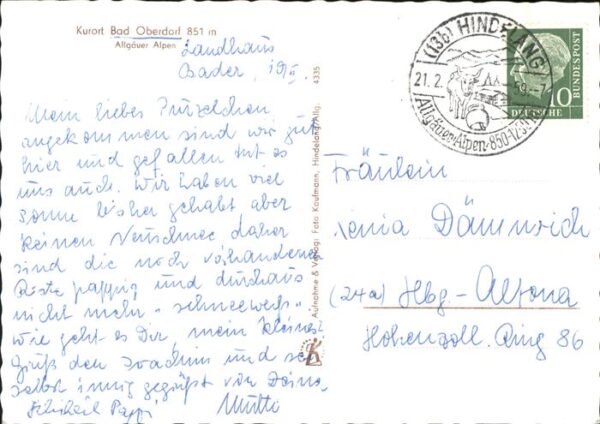 Kurort Bad Oberdorf 851 m
Allgäuer Alpen
Landhaus
Bader, 19.II.
Mein liebes Putzelchen
angekommen sind wir gut
hier und gefallen tut es
uns auch. Wir haben viel
Sonne bisher gehabt aber
keinen Neuschnee daher
sind die noch vorhandenen
Reste pappig und durchaus
nicht mehr "schneeweiß".
Wie geht es Dir, mein kleines
Grüß den Joachim und sei
selbst innig gegrüßt von Deiner
Mutti
Pappi
4335
Aufnahme & Verlag: Foto Kaufmann, Hindelang/Allg.
(13b) HINDELANG
21.2. 59.-7
Allgäuer-Alpen-850-
10
DEUTSCHE
BUNDESPOST
Fräulein
Xenia Dämmrich
(24a) Hbg.-Altona
Hohenzoll. Ring 86